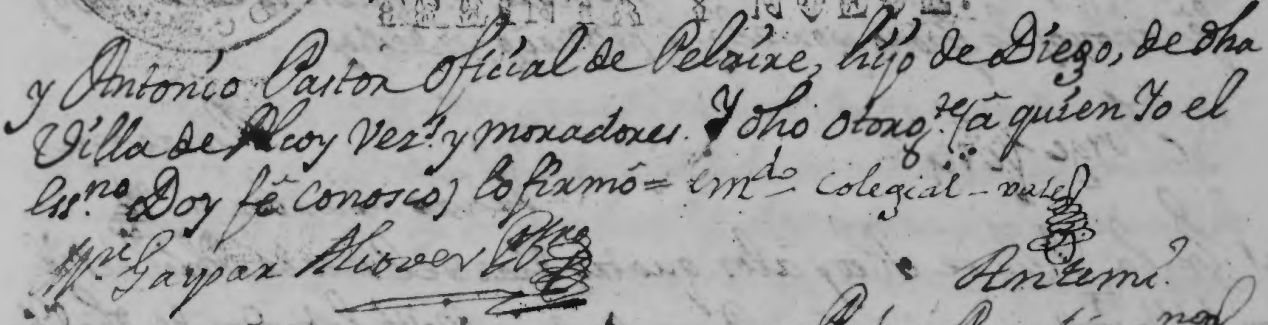 TREINTA Y NUEVE.
y Antonio Pastor Oficial de Pelaire, hijo de Diego, de dha
Villa de Alcoy vez.s y moradores. Y dho otorg.te (â quien Yo el
Ess.no Doy fê conosco) lo firmó = em.do colegial - vale
Gaspar
Antemi.